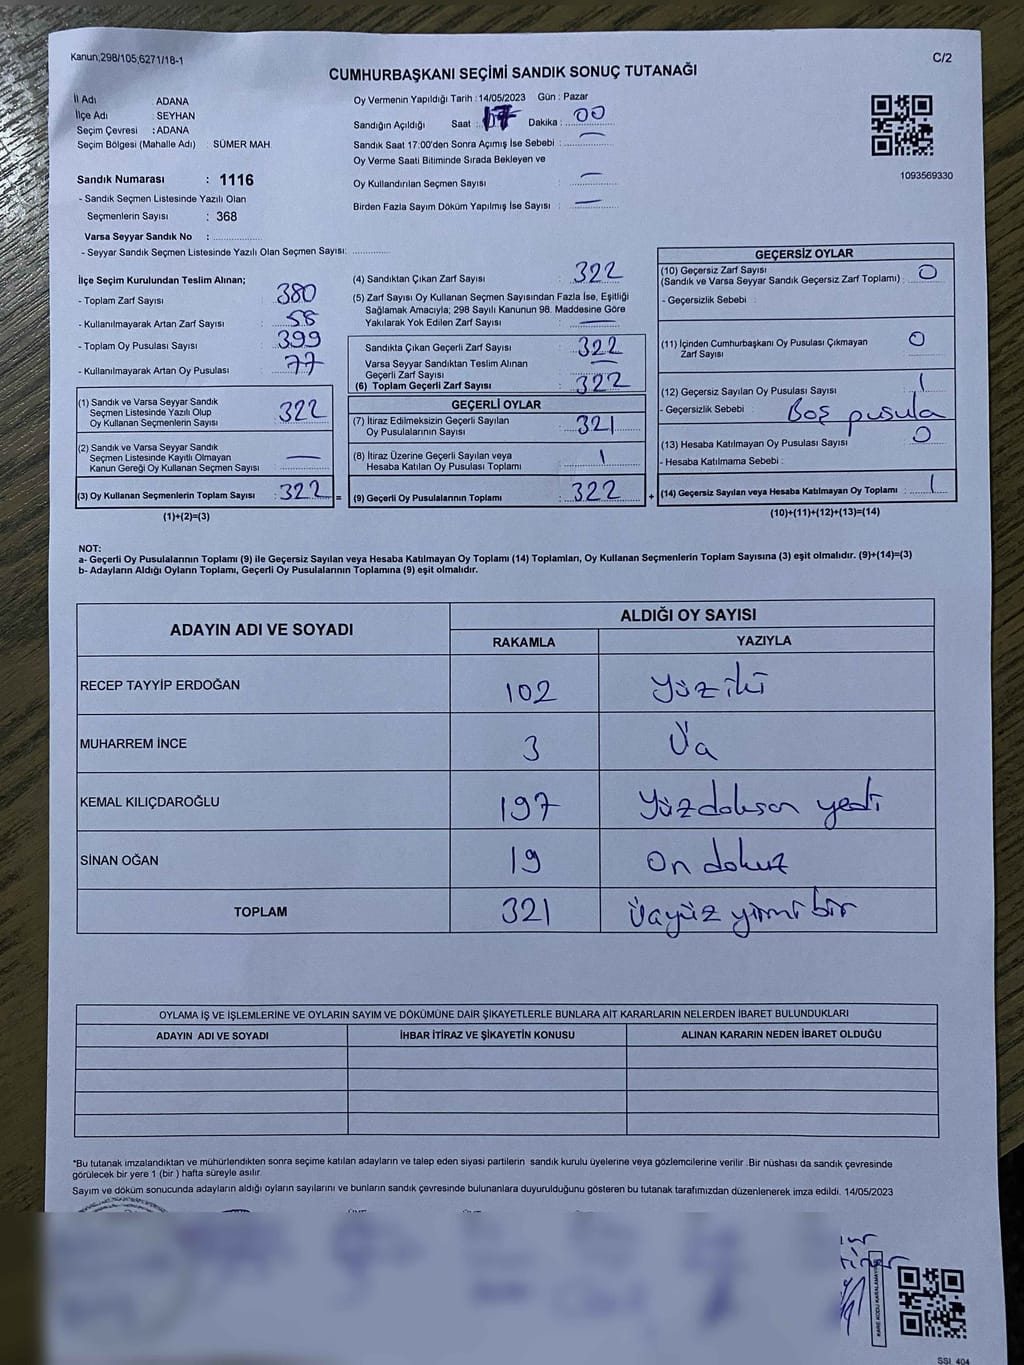 Kanun,298/105,6271/18-1
C/2
CUMHURBAŞKANI SEÇİMİ SANDIK SONUÇ TUTANAĞI
İl Adı ADANA
İlçe Adı SEYHAN
Seçim Çevresi : ADANA
Seçim Bölgesi (Mahalle Adı) SÜMER MAH
Sandık Numarası : 1116
- Sandık Seçmen Listesinde Yazılı Olan
Seçmenlerin Sayısı : 368
Varsa Seyyar Sandık No :
- Seyyar Sandık Seçmen Listesinde Yazılı Olan Seçmen Sayısı:
Oy Vermenin Yapıldığı Tarih : 14/05/2023 Gün : Pazar
Sandığın Açıldığı Saat : 17 Dakika : 00
Sandık Saat 17:00'den Sonra Açımış İse Sebebi : —
Oy Verme Saati Bitiminde Sırada Bekleyen ve
Oy Kullandırılan Seçmen Sayısı : —
Birden Fazla Sayım Döküm Yapılmış İse Sayısı : —
1093569330
İlçe Seçim Kurulundan Teslim Alınan;
- Toplam Zarf Sayısı : 380
- Kullanılmayarak Artan Zarf Sayısı : 58
- Toplam Oy Pusulası Sayısı : 399
- Kullanılmayarak Artan Oy Pusulası : 77
(1) Sandık ve Varsa Seyyar Sandık
Seçmen Listesinde Yazılı Olup
Oy Kullanan Seçmenlerin Sayısı : 322
(2) Sandık ve Varsa Seyyar Sandık
Seçmen Listesinde Kayıtlı Olmayan
Kanun Gereği Oy Kullanan Seçmen Sayısı : —
(3) Oy Kullanan Seçmenlerin Toplam Sayısı : 322 =
(1)+(2)=(3)
(4) Sandıktan Çıkan Zarf Sayısı : 322
(5) Zarf Sayısı Oy Kullanan Seçmen Sayısından Fazla İse, Eşitliği
Sağlamak Amacıyla; 298 Sayılı Kanunun 98. Maddesine Göre
Yakılarak Yok Edilen Zarf Sayısı : —
Sandıkta Çıkan Geçerli Zarf Sayısı : 322
Varsa Seyyar Sandıktan Teslim Alınan
Geçerli Zarf Sayısı : —
(6) Toplam Geçerli Zarf Sayısı : 322
GEÇERLİ OYLAR
(7) İtiraz Edilmeksizin Geçerli Sayılan
Oy Pusulalarının Sayısı : 321
(8) İtiraz Üzerine Geçerli Sayılan veya
Hesaba Katılan Oy Pusulası Toplamı : 1
(9) Geçerli Oy Pusulalarının Toplamı : 322 +
GEÇERSİZ OYLAR
(10) Geçersiz Zarf Sayısı
(Sandık ve Varsa Seyyar Sandık Geçersiz Zarf Toplamı) : 0
- Geçersizlik Sebebi :
(11) İçinden Cumhurbaşkanı Oy Pusulası Çıkmayan
Zarf Sayısı : 0
(12) Geçersiz Sayılan Oy Pusulası Sayısı : 1
- Geçersizlik Sebebi : Boş pusula
(13) Hesaba Katılmayan Oy Pusulası Sayısı : 0
- Hesaba Katılmama Sebebi :
(14) Geçersiz Sayılan veya Hesaba Katılmayan Oy Toplamı : 1
(10)+(11)+(12)+(13)=(14)
NOT:
a- Geçerli Oy Pusulalarının Toplamı (9) ile Geçersiz Sayılan veya Hesaba Katılmayan Oy Toplamı (14) Toplamları, Oy Kullanan Seçmenlerin Toplam Sayısına (3) eşit olmalıdır. (9)+(14)=(3)
b- Adayların Aldığı Oyların Toplamı, Geçerli Oy Pusulalarının Toplamına (9) eşit olmalıdır.
ADAYIN ADI VE SOYADI
ALDIĞI OY SAYISI
RAKAMLA YAZIYLA
RECEP TAYYİP ERDOĞAN 102 Yüz iki
MUHARREM İNCE 3 Üç
KEMAL KILIÇDAROĞLU 197 Yüzdoksan yedi
SİNAN OĞAN 19 On dokuz
TOPLAM 321 Üçyüz yirmi bir
OYLAMA İŞ VE İŞLEMLERİNE VE OYLARIN SAYIM VE DÖKÜMÜNE DAİR ŞİKAYETLERLE BUNLARA AİT KARARLARIN NELERDEN İBARET BULUNDUKLARI
ADAYIN ADI VE SOYADI İHBAR İTİRAZ VE ŞİKAYETİN KONUSU ALINAN KARARIN NEDEN İBARET OLDUĞU
*Bu tutanak imzalandıktan ve mühürlendikten sonra seçime katılan adayların ve talep eden siyasi partilerin sandık kurulu üyelerine veya gözlemcilerine verilir .Bir nüshası da sandık çevresinde
görülecek bir yere 1 (bir ) hafta süreyle asılır.
Sayım ve döküm sonucunda adayların aldığı oyların sayılarını ve bunların sandık çevresinde bulunanlara duyurulduğunu gösteren bu tutanak tarafımızdan düzenlenerek imza edildi. 14/05/2023
KARE KODU KARALAMAYINIZ
SSI 404